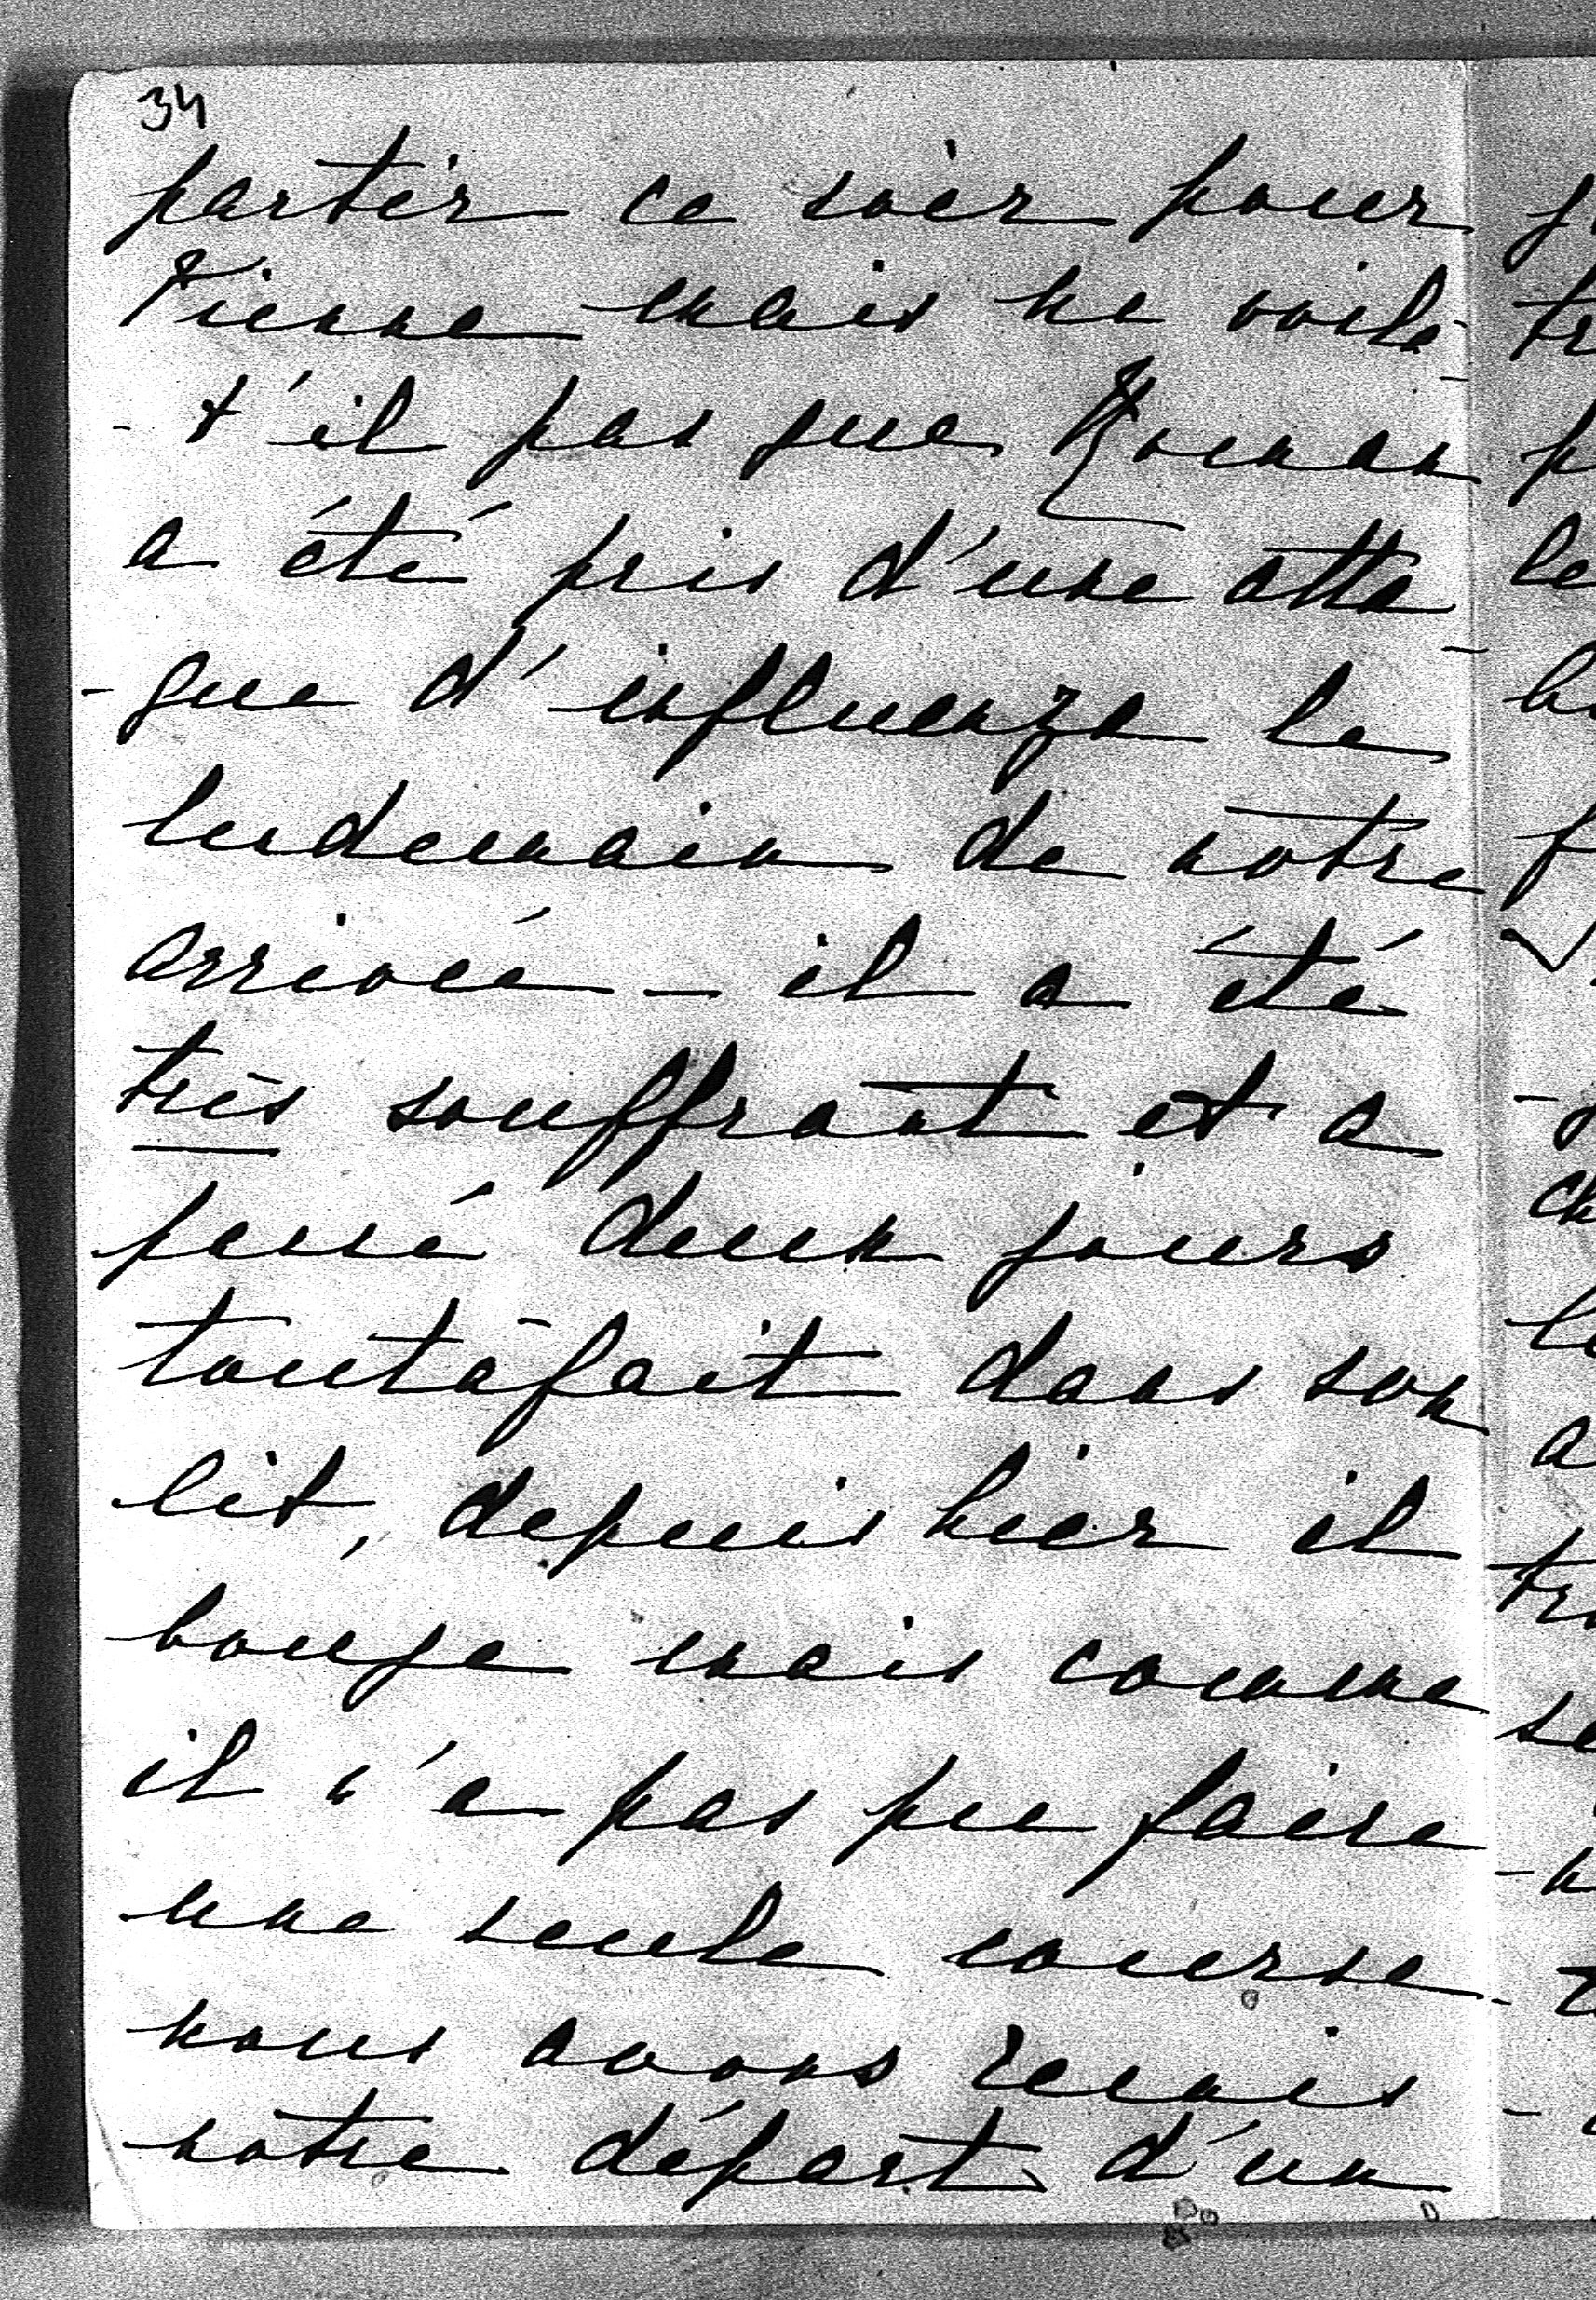 34
partir ce soir pour
Vienne mais ne voilà-
-t'il pas que Roman
a été pris d'une atta-
-que d'influenza le
lendemain de notre
arrivée – il a été
très souffrant et a
passé deux jours
toutàfait dans son
lit, depuis hier il
bouge mais comme
il n'a pas pu faire
une seule course
nous avons remis
notre départ d'un